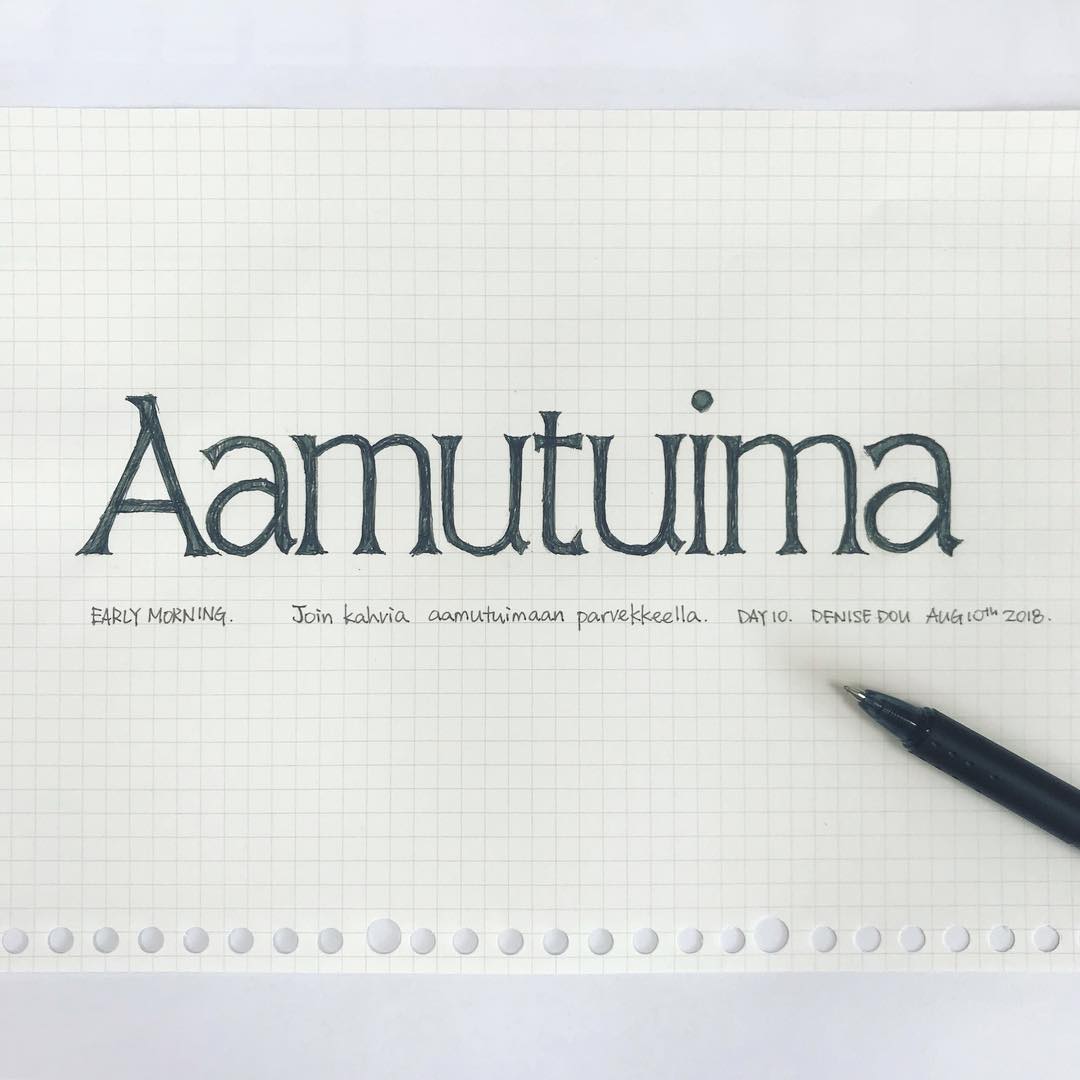 Aamutuima
EARLY MORNING. Join kahvia aamutuimaan parvekkeella. DAY 10. DENISE DOU AUG 10th 2018.